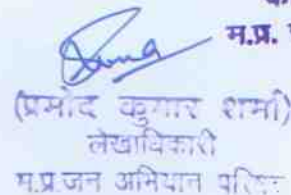 म.प्र.
(प्रमोद कुमार शर्मा)
लेखाधिकारी
म.प्र.जन अभियान परिषद